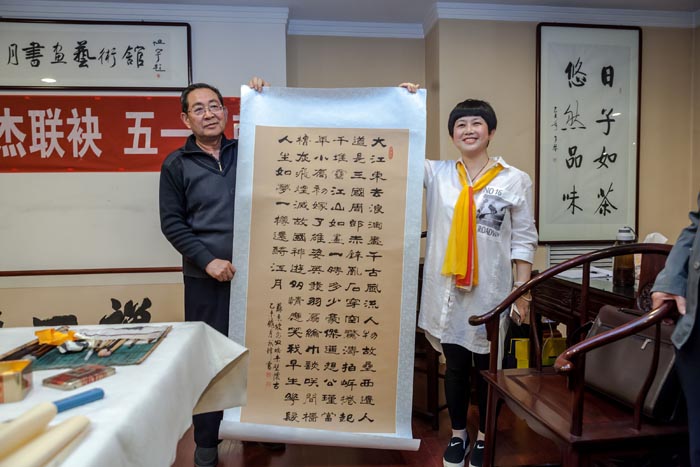 月書画藝術館
杰联袂 五一
大江東去浪淘盡千古風流人物故壘西邊人
道是三國周郎赤壁亂石穿空驚濤拍岸卷起
千堆雪江山如畫一時多少豪傑遙想公瑾當
年小喬初嫁了雄姿英發羽扇綸巾談笑間檣
櫓灰飛煙滅故國神遊多情應笑我早生華髮
人生如夢一樽還酹江月
日子如茶
悠然品味
NO 16
BROADWAY